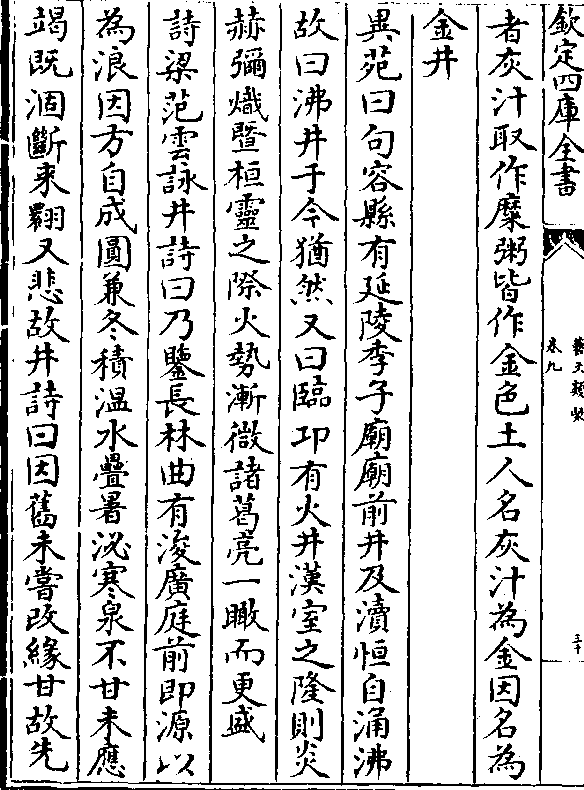 欽定四庫全書
藝文類聚
卷九
三十
者灰汁取作糜粥皆作金色土人名灰汁為金因名為
金井
異苑曰句容縣有延陵季子廟廟前井及瀆恒自涌沸
故曰沸井于今猶然又曰臨邛有火井漢室之隆則炎
赫彌熾暨桓靈之際火勢漸微諸葛亮一瞰而更盛
詩梁范雲詠井詩曰乃鑒長林曲有浚廣庭前即源以
為浪因方自成圓兼冬積溫水疊暑泌寒泉不甘未應
竭既涸斷來翾又悲故井詩曰因舊未嘗改緣甘故先